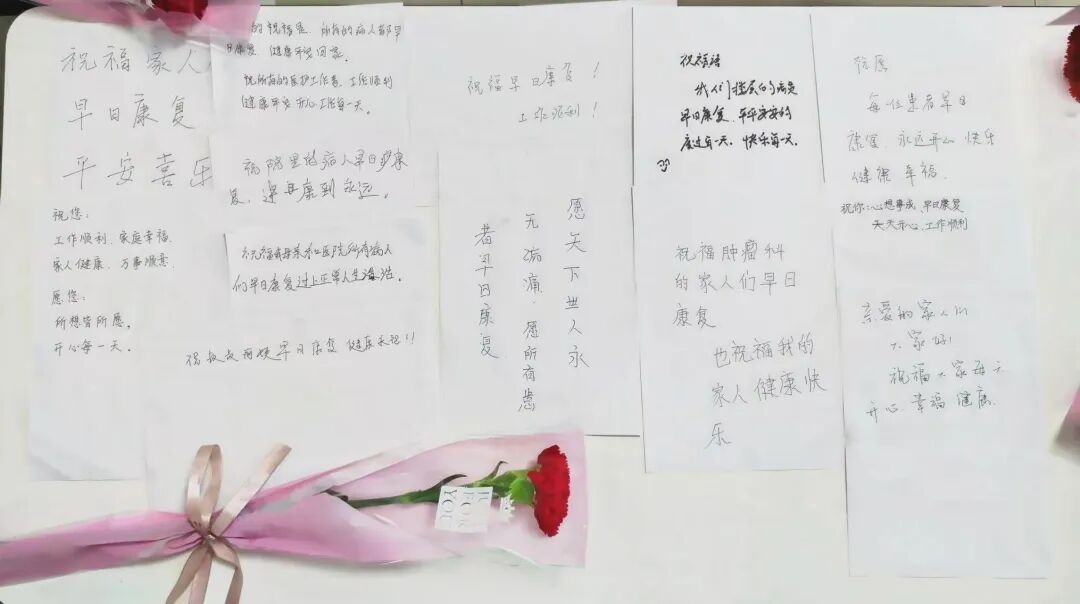 祝福家人
早日康复
平安喜乐
祝您:
工作顺利、家庭幸福、
家人健康、万事顺意、
愿您:
所想皆所愿。
开心每一天。
的祝福是,所有的病人都早
日康复,健康平安回家。
祝所有的医护工作者,工作顺利
健康平安 开心工作每一天。
祝院里的病人早日康
复,
医院所有病人
们早日康复过上正常人生活
早日康复 健康
祝福早日康复!
工作顺利!
愿天下世人永
无病痛,愿所有患
者早日康复
祝福语
我们楼层的病患
早日康复、平平安安的
度过每一天。快乐每一天。
祝福肿瘤科
的家人们早日
康复
也祝福我的
家人健康快
乐
祝愿
每一位患者早日
康复,永远开心 快乐
健康 幸福。
祝你:心想事成、早日康复
天天开心、工作顺利
亲爱的家人们
大家好!
祝福大家每天
开心 幸福 健康.
FOR
YOU